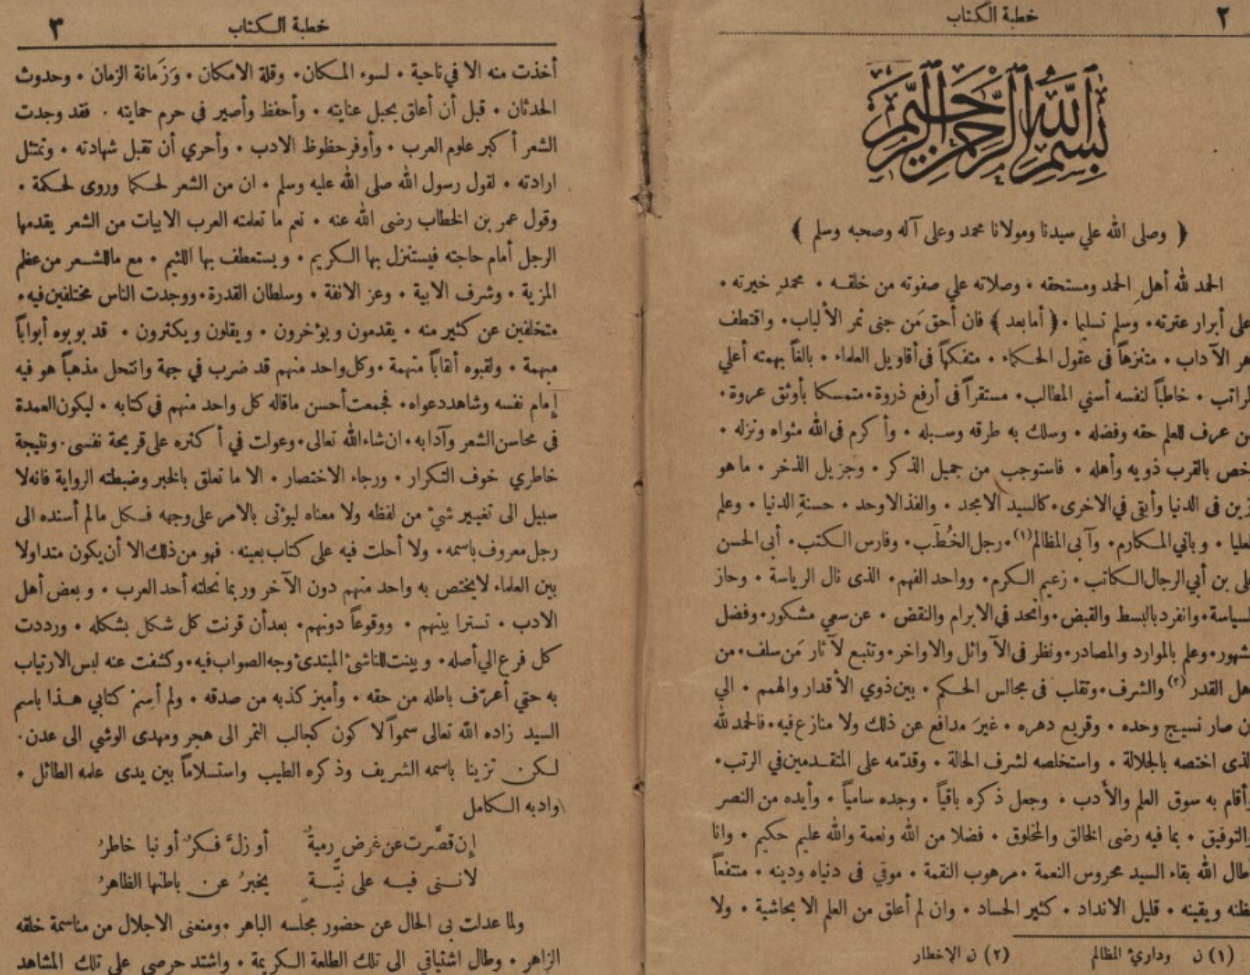 ٢
خطبة الكتاب
بسم الله الرحمن الرحيم
﴿ وصلى الله علي سيدنا ومولانا محمد وعلى آله وصحبه وسلم ﴾
الحمد لله أهل الحمد ومستحقه • وصلاته علي صفوته من خلقه • محمدٍ خيرته •
على أبرار عترته • وسلم تسليما • ﴿ أما بعد ﴾ فان أحق مَن جنى ثمر الألباب • واقتطف
هر الآداب • متنزهاً فى عقول الحكماء • متفكهاً في أقاويل العلماء • بالغاً بهمته أعلي
لراتب • خاطباً لنفسه أسني المطالب • مستقراً فى أرفع ذروة • متمسكا بأوثق عروة •
من عرف للعلم حقه وفضله • وسلك به طرقه وسبله • وأكرم فى الله مثواه ونزله •
خص بالقرب ذويه وأهله • فاستوجب من جميل الذكر • وجزيل الذخر • ما هو
زين فى الدنيا وأبقى في الاخرى • كالسيد الامجد • والفذ الاوحد • حسنةِ الدنيا • وعلم
لعليا • وباني المكارم • وآبى المظالم (١) • رجل الخُطَب • وفارس الكتب • أبى الحسن
على بن أبي الرجال الكاتب • زعيم الكرم • وواحد الفهم • الذى نال الرياسة • وحاز
لسياسة • وانفرد بالبسط والقبض • وانحد في الابرام والنقض • عن سعي مشكور • وفضل
شهور • وعلم بالموارد والمصادر • ونظر فى الآوائل والاواخر • وتتبع لآثار مَن سلف • من
هل القدر (٢) والشرف • وتقلب فى مجالس الحكم • بين ذوي الأقدار والهمم • الي
ن صار نسيج وحده • وقريع دهره • غيرَ مدافع عن ذلك ولا منازع فيه • فالحمد لله
لذى اختصه بالجلالة • واستخلصه لشرف الحالة • وقدّمه على المتقدمين في الرتب •
أقام به سوق العلم والأدب • وجعل ذكره باقياً • وجده سامياً • وأيده من النصر
التوفيق • بما فيه رضى الخالق والمخلوق • فضلا من الله ونعمة والله عليم حكيم • وانا
طال الله بقاء السيد محروس النعمة • مرهوب النقمة • موقى فى دنياه ودينه • منتفعاً
ظنه ويقينه • قليل الانداد • كثير الحساد • وان لم أعلق من العلم الا بحاشية • ولا
(١) ن ودارئ المظالم (٢) ن الاخطار
خطبة الكتاب
٣
أخذت منه الا في ناحية • لسوء المكان • وقلة الامكان • وَزَمانة الزمان • وحدوث
الحدثان • قبل أن أعلق بحبل عنايته • وأحفظ وأصير في حرم حمايته • فقد وجدت
الشعر أكبر علوم العرب • وأوفر حظوظ الادب • وأحري أن تقبل شهادته • وتمتثل
ارادته • لقول رسول الله صلى الله عليه وسلم • ان من الشعر لحكما وروى لحكمة •
وقول عمر بن الخطاب رضى الله عنه • نعم ما تعلمته العرب الابيات من الشعر يقدمها
الرجل أمام حاجته فيستنزل بها الكريم • ويستعطف بها اللئيم • مع ما للشعر من عظم
المزية • وشرف الابية • وعز الانفة • وسلطان القدرة • ووجدت الناس مختلفين فيه •
متخلفين عن كثير منه • يقدمون ويؤخرون • ويقلون ويكثرون • قد بوبوه أبواباً
مبهمة • ولقبوه ألقاباً متهمة • وكل واحد منهم قد ضرب في جهة وانتحل مذهباً هو فيه
إمام نفسه وشاهد دعواه • فجمعت أحسن ما قاله كل واحد منهم فى كتابه • ليكون العمدة
فى محاسن الشعر وآدابه • ان شاء الله تعالى • وعولت في أكثره على قريحة نفسى • ونتيجة
خاطري خوف التكرار • ورجاء الاختصار • الا ما تعلق بالخبر وضبطته الرواية فانه لا
سبيل الى تغيير شئ من لفظه ولا معناه ليؤتى بالامر على وجهه فكل ما لم أسنده الى
رجل معروف باسمه • ولا أحلت فيه على كتاب بعينه • فهو من ذلك الا أن يكون متداولا
بين العلماء لا يختص به واحد منهم دون الآخر وربما نحلته أحد العرب • وبعض أهل
الادب • تسترا بينهم • ووقوعاً دونهم • بعد أن قرنت كل شكل بشكله • ورددت
كل فرع الي أصله • وبينت للناشئ المبتدئ وجه الصواب فيه • وكشفت عنه لبس الارتياب
به حتي أعرّف باطله من حقه • وأميز كذبه من صدقه • ولم أسِمْ كتابي هذا باسم
السيد زاده الله تعالى سمواً لا كون كجالب التمر الى هجر ومهدى الوشي الى عدن •
لكن تزينا باسمه الشريف وذكره الطيب واستسلاماً بين يدى علمه الطائل •
وادبه الكامل
إن قصَّرت عن غرض رميةٌ أو زلَّ فكرٌ أو نبا خاطرُ
لاننى فيه على نيَّة يخبرُ عن باطنها الظاهرُ
ولما عدلت بى الحال عن حضور مجلسه الباهر • ومنعنى الاجلال من مناسمة خلقه
الزاهر • وطال اشتياقي الى تلك الطلعة الكريمة • واشتد حرصي على تلك المشاهد